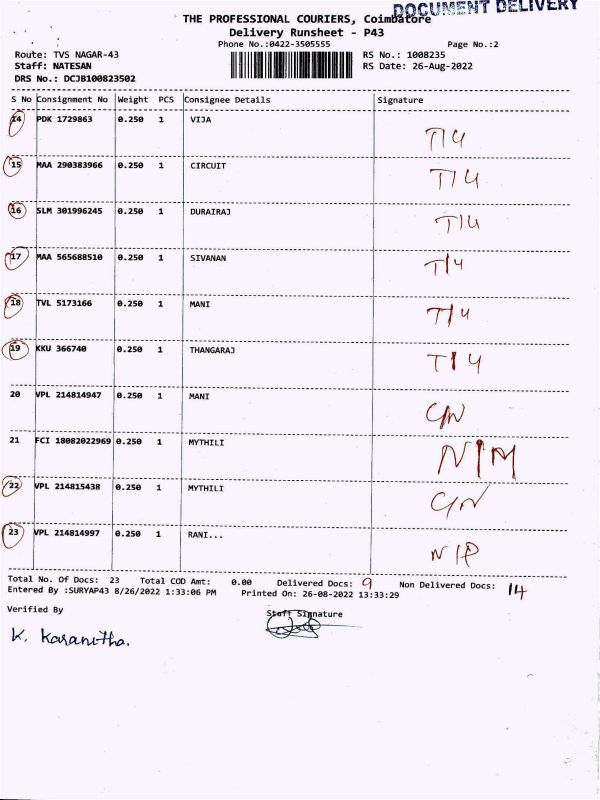 DOCUMENT DELIVERY
THE PROFESSIONAL COURIERS, Coimbatore
Delivery Runsheet - P43
Phone No.:0422-3505555 Page No.:2
Route: TVS NAGAR-43 RS No.: 1008235
Staff: NATESAN RS Date: 26-Aug-2022
DRS No.: DCJB100823502
S No Consignment No Weight PCS Consignee Details Signature
14 PDK 1729863 0.250 1 VIJA
T/4
15 MAA 290383966 0.250 1 CIRCUIT
T/4
16 SLM 301996245 0.250 1 DURAIRAJ
T/4
17 MAA 565688510 0.250 1 SIVANAN
T/4
18 TVL 5173166 0.250 1 MANI
T/4
19 KKU 366740 0.250 1 THANGARAJ
T/4
20 VPL 214814947 0.250 1 MANI
21 FCI 18082022969 0.250 1 MYTHILI
N/M
22 VPL 214815438 0.250 1 MYTHILI
23 VPL 214814997 0.250 1 RANI...
N/P
Total No. Of Docs: 23 Total COD Amt: 0.00 Delivered Docs: 9 Non Delivered Docs: 14
Entered By :SURYAP43 8/26/2022 1:33:06 PM Printed On: 26-08-2022 13:33:29
Verified By Staff Signature
K. Karanitha.